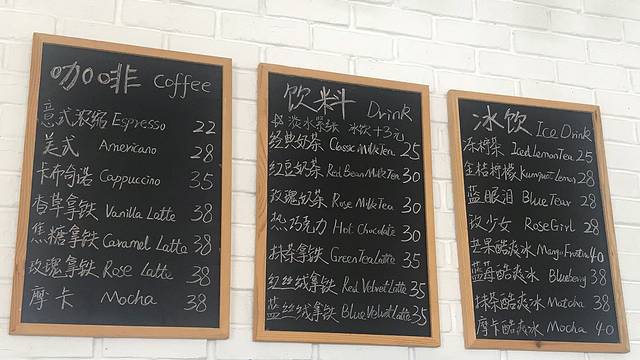 咖啡 Coffee
意式浓缩 Espresso 22
美式 Americano 28
卡布奇诺 Cappuccino 35
香草拿铁 Vanilla Latte 38
焦糖拿铁 Caramel Latte 38
玫瑰拿铁 Rose Latte 38
摩卡 Mocha 38
饮料 Drink
冰饮+3元
经典奶茶 Classic Milk Tea 25
红豆奶茶 Red Bean Milk Tea 30
玫瑰奶茶 Rose Milk Tea 30
热巧克力 Hot Chocolate 30
抹茶拿铁 Green Tea Latte 35
红丝绒拿铁 Red Velvet Latte 35
蓝丝绒拿铁 Blue Velvet Latte 35
冰饮 Ice Drink
冻柠茶 Iced Lemon Tea 25
金桔柠檬 Kumquat Lemon 28
蓝眼泪 Blue Tear 28
玫少女 Rose Girl 28
芒果酷爽冰 Mango 40
蓝母酷爽冰 Blueberry 38
抹茶酷爽冰 Matcha 38
摩卡酷爽冰 Mocha 40